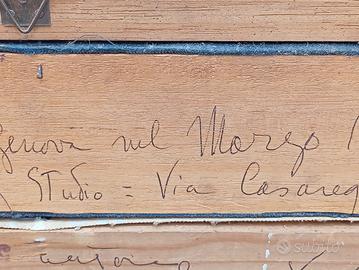 Genova nel Marzo 1
Studio = Via Casareg
subito